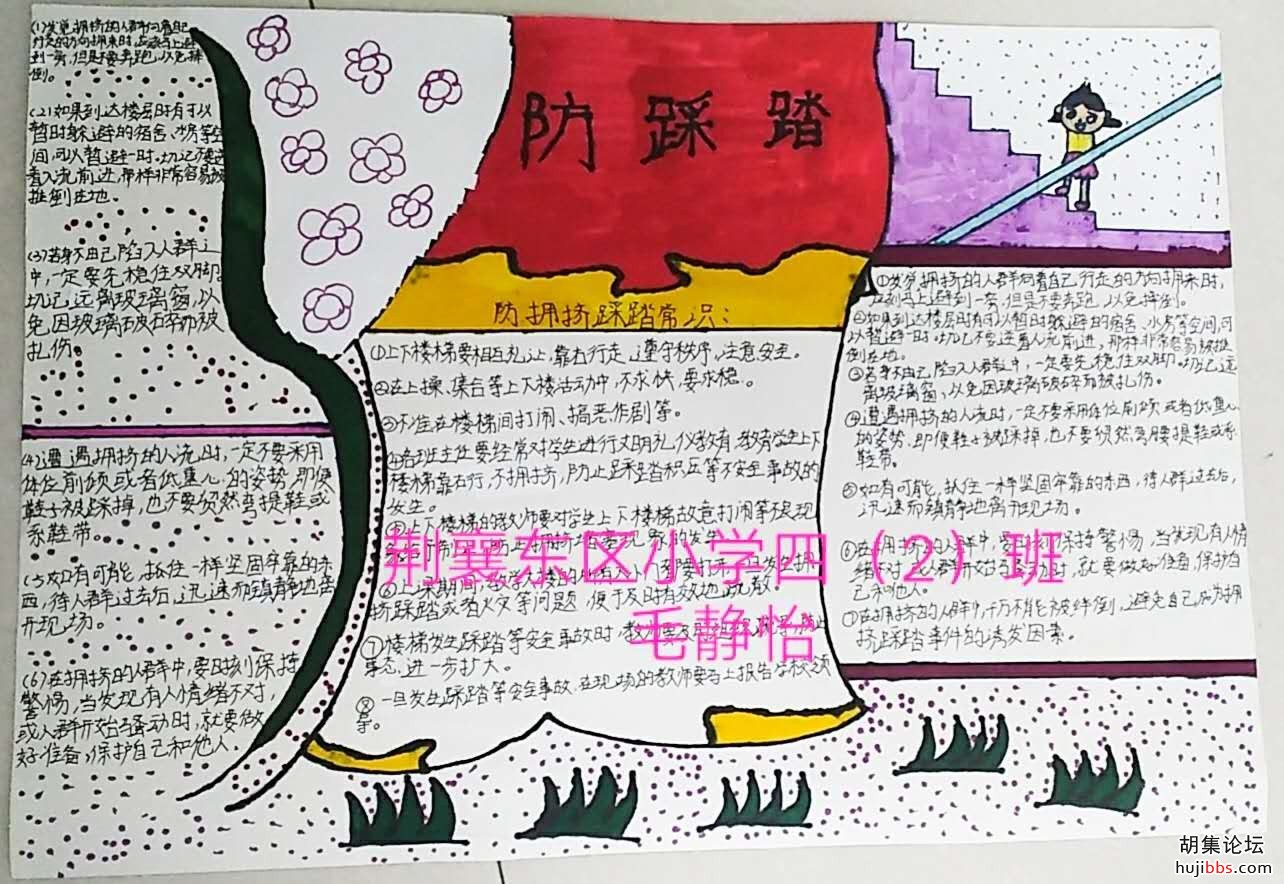 防踩踏
(1)发觉拥挤的人群向着自己
行走的方向拥来时,应该马上避
到一旁,但是不要奔跑,以免摔
倒。
(2)如果到达楼层时有可以
暂时躲避的宿舍、水房等空
间,可以暂避一时。切记不要逆
着人流前进,那样非常容易被
推倒在地。
(3)若身不由己陷入人群之
中,一定要先稳住双脚。
切记远离玻璃窗,以
免因玻璃破碎而被
扎伤。
(4)遭遇拥挤的人流时,一定不要采用
体位前倾或者低重心的姿势,即便
鞋子被踩掉,也不要贸然弯提鞋或
系鞋带。
(5)如有可能,抓住一样坚固牢靠的东
西,待人群过去后,迅速而镇静地离
开现场。
(6)在拥挤的人群中,要时刻保持
警惕,当发现有人情绪不对,
或人群开始骚动时,就要做
好准备,保护自己和他人.
防拥挤踩踏常识:
①上下楼梯要相互礼让,靠右行走,遵守秩序,注意安全。
②在上操、集合等上下楼活动中,不求快,要求稳。
③不准在楼梯间打闹、搞恶作剧等。
④各班主任要经常对学生进行文明礼仪教育,教育学生上下
楼梯靠右行,不拥挤,防止踩踏积压等不安全事故的
发生。
⑤上下楼梯的教师要对学生上下楼梯故意打闹等不良现
⑥上课期间,教学大楼的所有大小门
挤踩踏或者火灾等问题,便于及时有效地疏散。
⑦楼梯发生踩踏等安全事故时,教
事态进一步扩大。
⑧一旦发生踩踏等安全事故,在现场的教师要马上报告学校领
导。
①发觉拥挤的人群向着自己行走的方向拥来时,
应到马上避到一旁,但是不要奔跑,以免摔倒。
②如果到达楼层时有可以暂时躲避的宿舍、水房等空间,可
以暂避一时。切记不要逆着人流前进,那样非常容易被推
倒在地。
③若身不由己陷入人群之中,一定要先稳住双脚。切记远
离玻璃窗,以免因玻璃破碎而被扎伤。
④遭遇拥挤的人流时,一定不要采用体位前倾或者低重心
的姿势,即便鞋子被踩掉,也不要贸然弯腰提鞋或系
鞋带。
⑤如有可能,抓住一样坚固牢靠的东西,待人群过去后,
迅速而镇静地离开现场。
⑥在拥挤的人群中,要时刻保持警惕,当发现有人情
绪不对,或人群开始骚动时,就要做好准备,保护自
己和他人。
⑦在拥挤的人群中,千万不能被绊倒,避免自己成为拥
挤踩踏事件的诱发因素。
荆襄东区小学四(2)班
毛静怡
胡集论坛
hujibbs.com